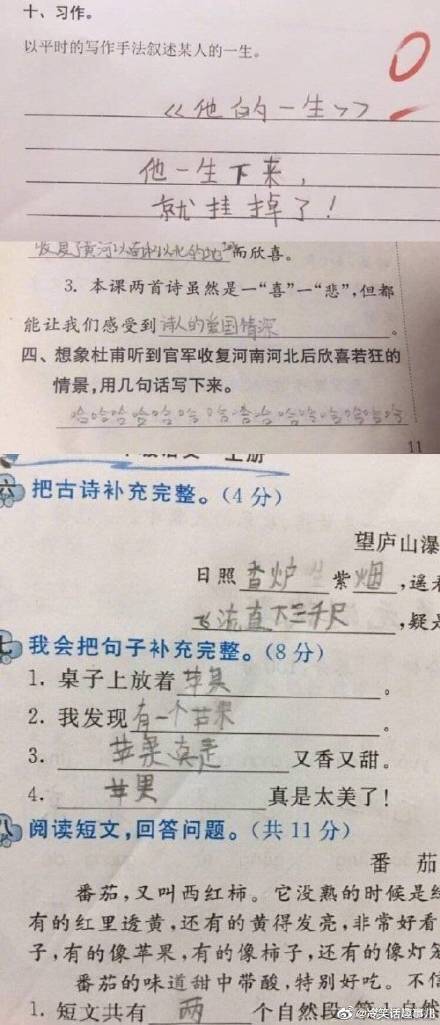 十、习作。
以平时的写作手法叙述某人的一生。
0
《他的一生》
他一生下来，
就挂掉了！
而欣喜。
3. 本课两首诗虽然是一“喜”一“悲”，但都
能让我们感受到诗人的爱国情深。
四、想象杜甫听到官军收复河南河北后欣喜若狂的
情景，用几句话写下来。
哈哈哈哈哈哈哈哈哈哈哈哈哈哈哈
11
六 把古诗补充完整。（4分）
望庐山瀑
日照香炉生紫烟，遥
飞流直下三千尺，疑
七 我会把句子补充完整。（8分）
1. 桌子上放着苹果。
2. 我发现有一个苹果。
3. 苹果真是又香又甜。
4. 苹果真是太美了！
八 阅读短文，回答问题。（共11分）
番 茄
番茄，又叫西红柿。它没熟的时候是
有的红里透黄，还有的黄得发亮，非常好看
子，有的像苹果，有的像柿子，还有的像灯笼
番茄的味道甜中带酸，特别好吃。不信
1. 短文共有两个自然段，第1自然
@冷笑话趣事儿